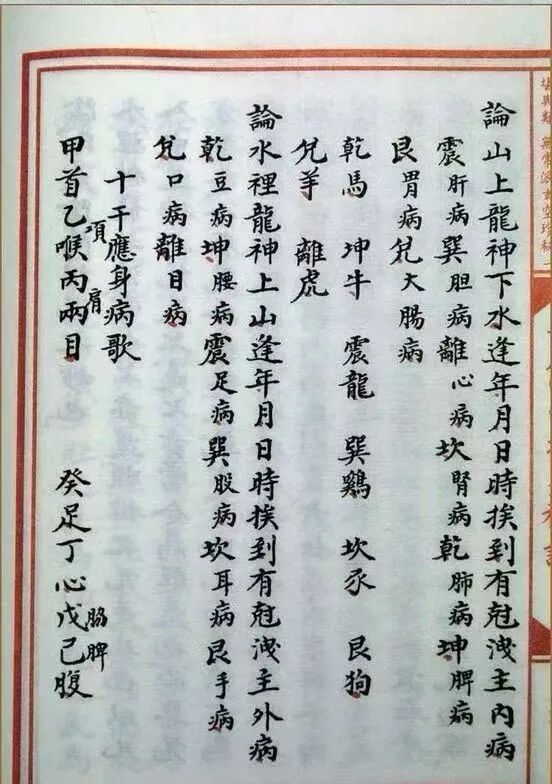 堪輿類 無常派玄空珍秘
論山上龍神下水逢年月日時挨到有尅洩主內病
震肝病巽胆病離心病坎腎病乾肺病坤脾病
艮胃病兌大腸病
乾馬 坤牛 震龍 巽鷄 坎豕 艮狗
兌羊 離虎
論水裡龍神上山逢年月日時挨到有尅洩主外病
乾豆病坤腰病震足病巽股病坎耳病艮手病
兌口病離目病
十干應身病歌
項 肩 脇脾
甲首乙喉丙兩目 癸足丁心戊己腹